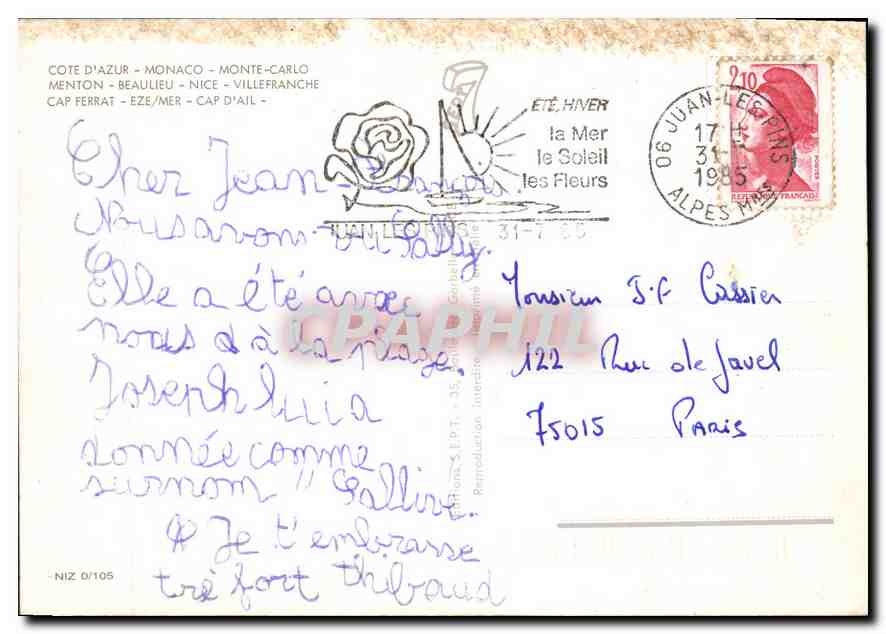 COTE D'AZUR - MONACO - MONTE-CARLO
MENTON - BEAULIEU - NICE - VILLEFRANCHE
CAP FERRAT - EZE/MER - CAP D'AIL -
ÉTÉ, HIVER
la Mer
le Soleil
les Fleurs
06 JUAN-LES-PINS
17 H
31-7
1985
ALPES Mmes
2,10
POSTES
REPUBLIQUE FRANCAISE
JUAN LES PINS 31-7 85
Cher Jean-François.
Nous avons vu Sally.
Elle a été avec
nous à la plage.
Joseph lui a
donnée comme
surnom "
Je t'embrasse
trè fort Thibaud
Monsieur J.F Cassier
122 Rue de Javel
75015 PARIS
Editions S.E.P.T. - 35,
Reproduction Interdite
CPAPHIL
NIZ 0/105